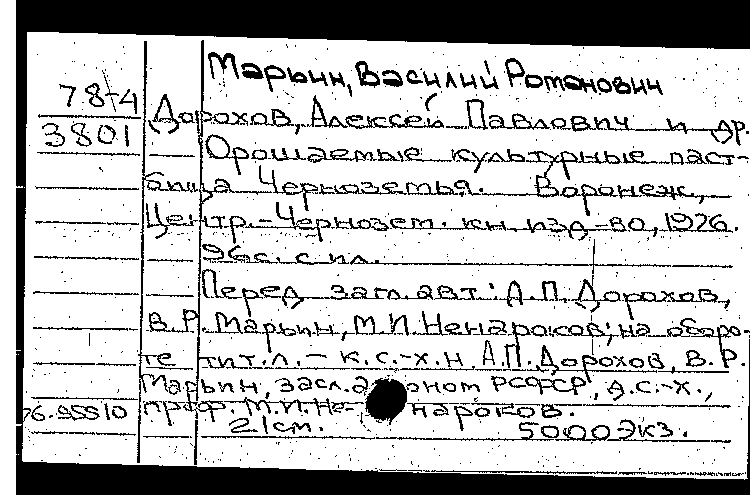 Марьин, Василий Романович
78-4
Дорохов, Алексей Павлович и др.
3801
Орошаемые культурные паст-
бища Черноземья. Воронеж,
Центр.-Чернозем. кн. изд-во, 1976.
96с. с ил.
Перед загл. авт: А.П. Дорохов,
В.Р. Марьин, М.И. Ненароков; на оборо-
те тит.л. – к.с.-х.н. А.П. Дорохов, В.Р.
Марьин, засл. агроном РСФСР, д.с.-х.,
проф. М.И. Не- нароков.
21см. 5000экз.